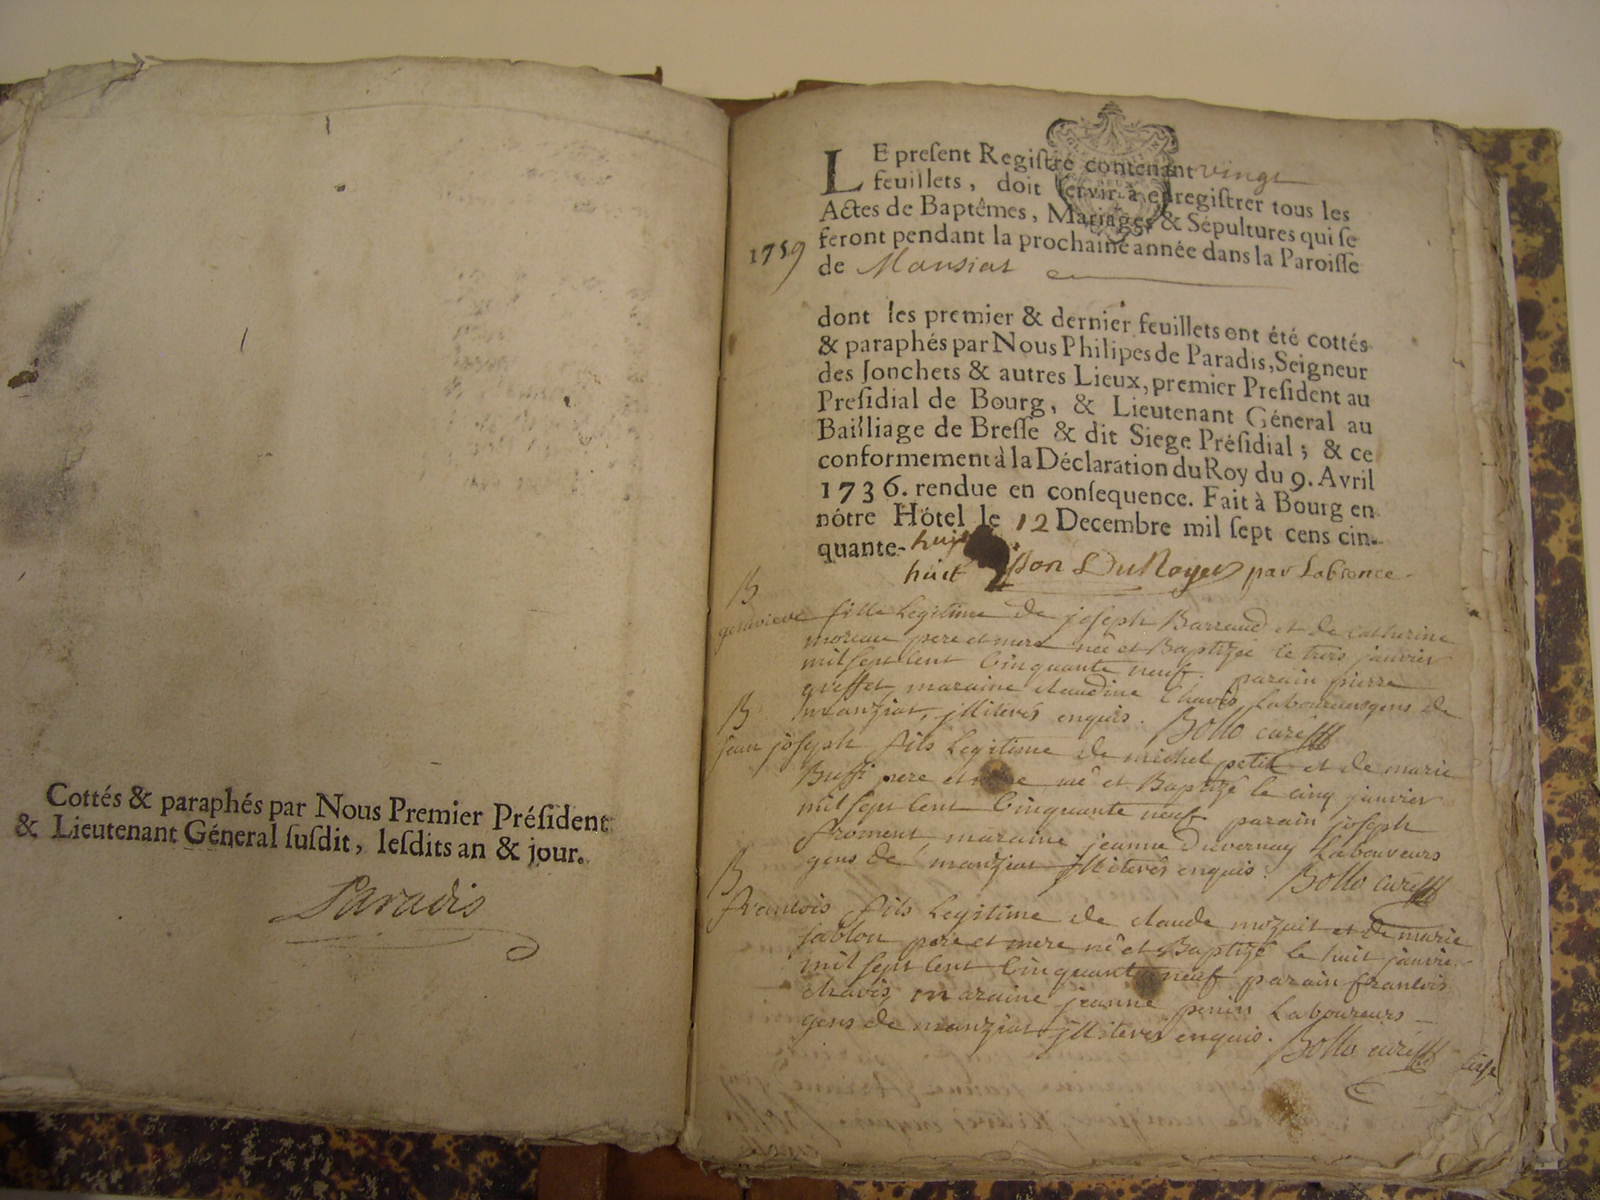 Cottés & paraphés par Nous Premier Préſident
& Lieutenant Géneral ſuſdit, leſdits an & jour.
Paradis
LE preſent Regiſtre contenant vingt
feuillets, doit ſervir à enregiſtrer tous les
Actes de Baptêmes, Mariages & Sépultures qui ſe
feront pendant la prochaine année dans la Paroiſſe
1759
de Mansiat
dont les premier & dernier feuillets ont été cottés
& paraphés par Nous Philipes de Paradis, Seigneur
des Jonchets & autres Lieux, premier Preſident au
Preſidial de Bourg, & Lieutenant Géneral au
Bailliage de Breſſe & dit Siege Préſidial; & ce
conformement à la Déclaration du Roy du 9. Avril
1736. rendue en conſequence. Fait à Bourg en
nôtre Hôtel le 12 Decembre mil ſept cens cin-
quante-huit
huit DuRoyer par
B
genevieve fille legitime de joseph Barraud et de catherine
moreau pere et mere née et Baptizée le trois janvier
mil sept cent cinquante neuf. parain pierre
greffet, maraine claudine chavis laboureurs gens de
manziat, jlliterés enquis. Bollo curé
B
jean joseph fils legitime de michel petit et de marie
Buffi pere et mere né et Baptizé le cinq janvier
mil sept cent cinquante neuf parain joseph
froment, maraine jeanne Duvernay laboureurs
gens de manziat jlliterés enquis. Bollo curé
B
francois fils legitime de claude mozuit et de marie
sablon pere et mere né et Baptizé le huit janvier
mil sept cent cinquante neuf parain francois
chavis maraine jeanne penin Laboureurs
gens de manziat jlliterés enquis. Bollo curé